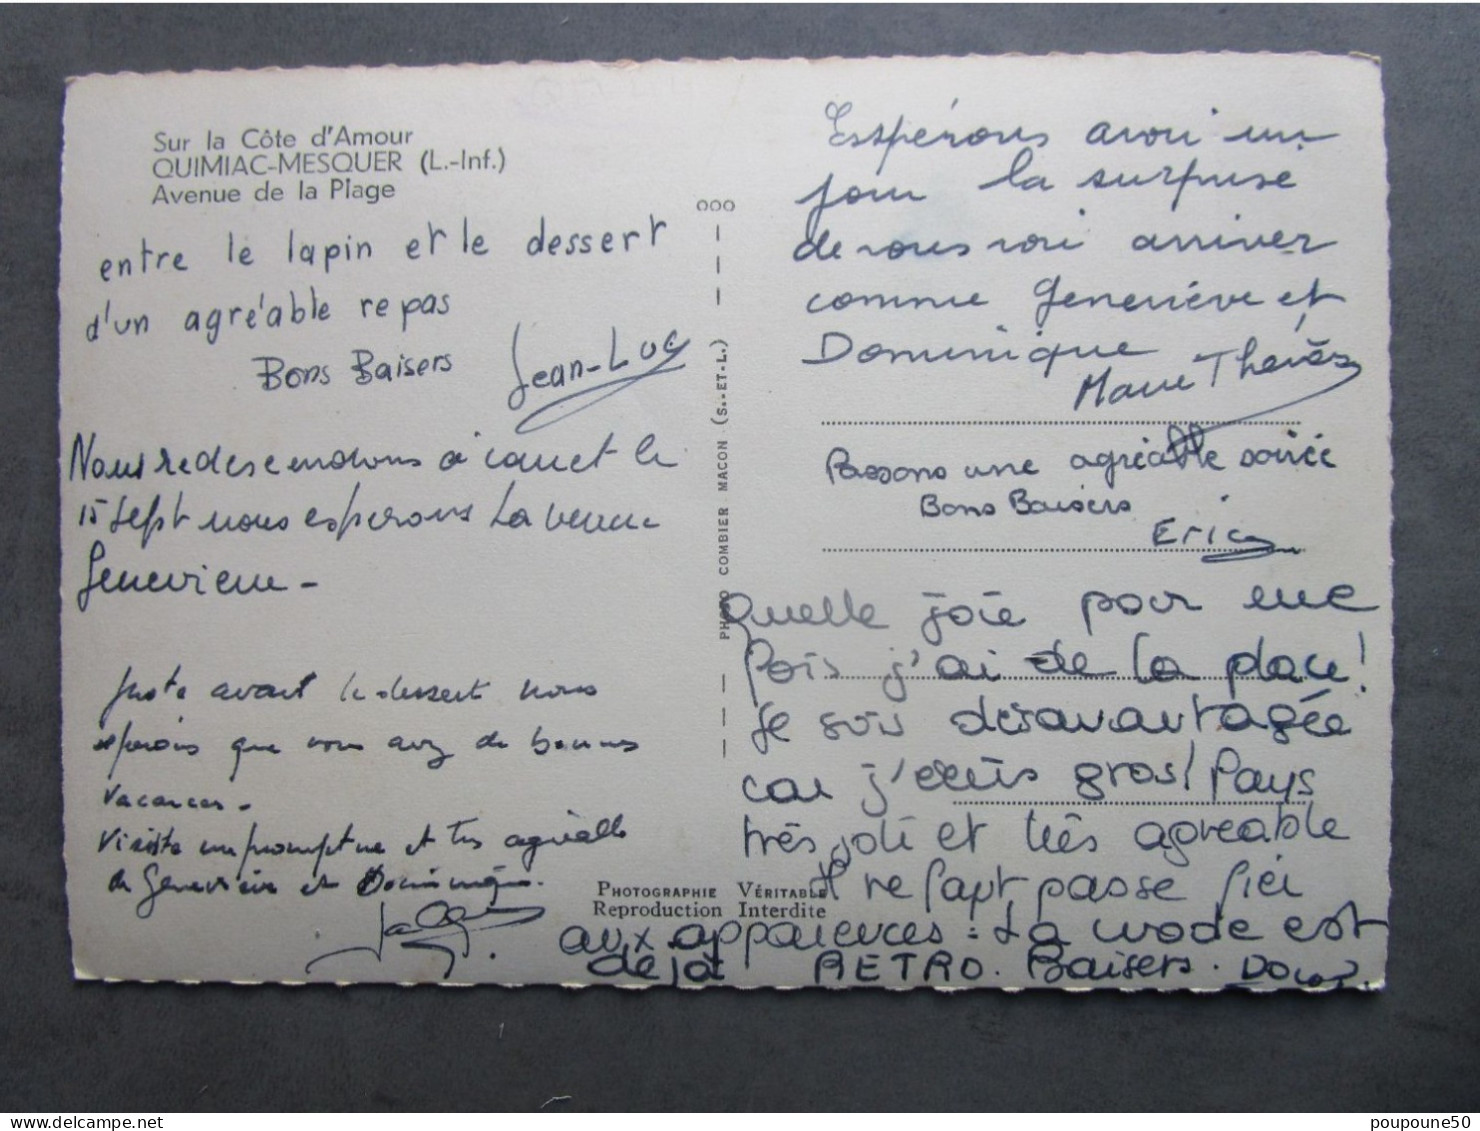 Sur la Côte d'Amour
QUIMIAC-MESQUER (L.-Inf.)
Avenue de la Plage
entre le lapin et le dessert
d'un agréable repas
Bons Baisers Jean-Luc
Nous redescendons à canet le
15 Sept nous esperons la venue
Genevieve -
Juste avant le dessert nous
esperons que vous avez de bonnes
vacances -
Visite impromptue et très agréable
de Geneviève et Dominique.
Jacques
ooo
PHOTO COMBIER MACON (S.-ET-L.)
Espérons avoir un
jour la surprise
de vous voir arriver
comme Geneviève et
Dominique
Marie Thérèse
Passons une agréable soirée
Bons Baisers
Eric
Quelle joie pour une
fois j'ai de la place!
Je suis désavantagée
car j'écris gros! Pays
très joli et très agréable
Il ne faut pas se fier
aux apparences : la mode est
déjà RETRO. Baisers.
PHOTOGRAPHIE VÉRITABLE
Reproduction Interdite
poupoune50